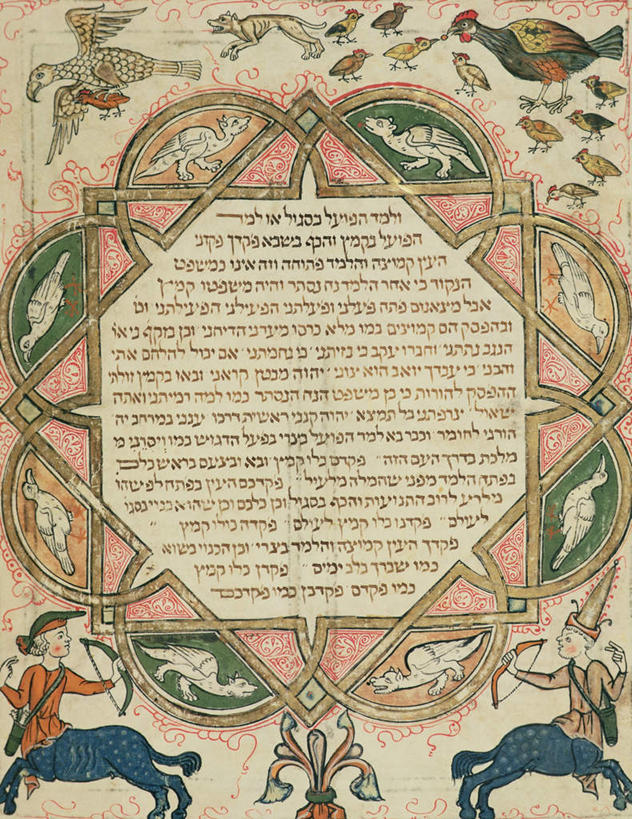 ולמד הפועל בסגול או למד
הפועל בקמץ והכף בשבא פקדך פקדני
העין קמוצה והלמד פתוחה וזה אינו כמשפט
הנקוד כי אחר הלמד נח נסתר והיה משפטו קמץ
אבל מצאנום פתח פעלני ופיעלתני הפעילני הפעילתני וכו
ובהפסק הם קמוצים כמו מלא כרסו מעדני הדיחני וכן
הנגב נתתני וחברו יעקב כי נחמתני אם יוכל להלחם אתי
והכני כי עבדך יואב הוא צוני יהוה מבטן קראני ובאו בקמץ זולתי
ההפסק להורות כי כן משפט הנח הנסתר כמו למה רמיתני ואתה
שאול יהוה קנני ראשית דרכו ענני במרחב יה
הורני לחומר וכבר בא למד הפועל בצרי בפעל הדגוש כמו ויסרני מ
מלכת בדרך העם הזה פקדם בלי קמץ ובא ובצעם בראש כלם
בפתח הלמד מפני שהמלה מלעיל פקדכם העין בפתח לפי שהו
מלריע לרוב התנועות והכף בסגול וכן כלכם וכן שהוא בנייבסגו
ליעולם פקדנו בלי קמץ ליעולם פקדה בילו קמץ
פקדך העין קמוצה והלמד בצרי וכן הכנוי בשוא
כמו שברך בלב ימים פקדן בלו קמץ
כמו פקדם פקדכן כמו פקדכם